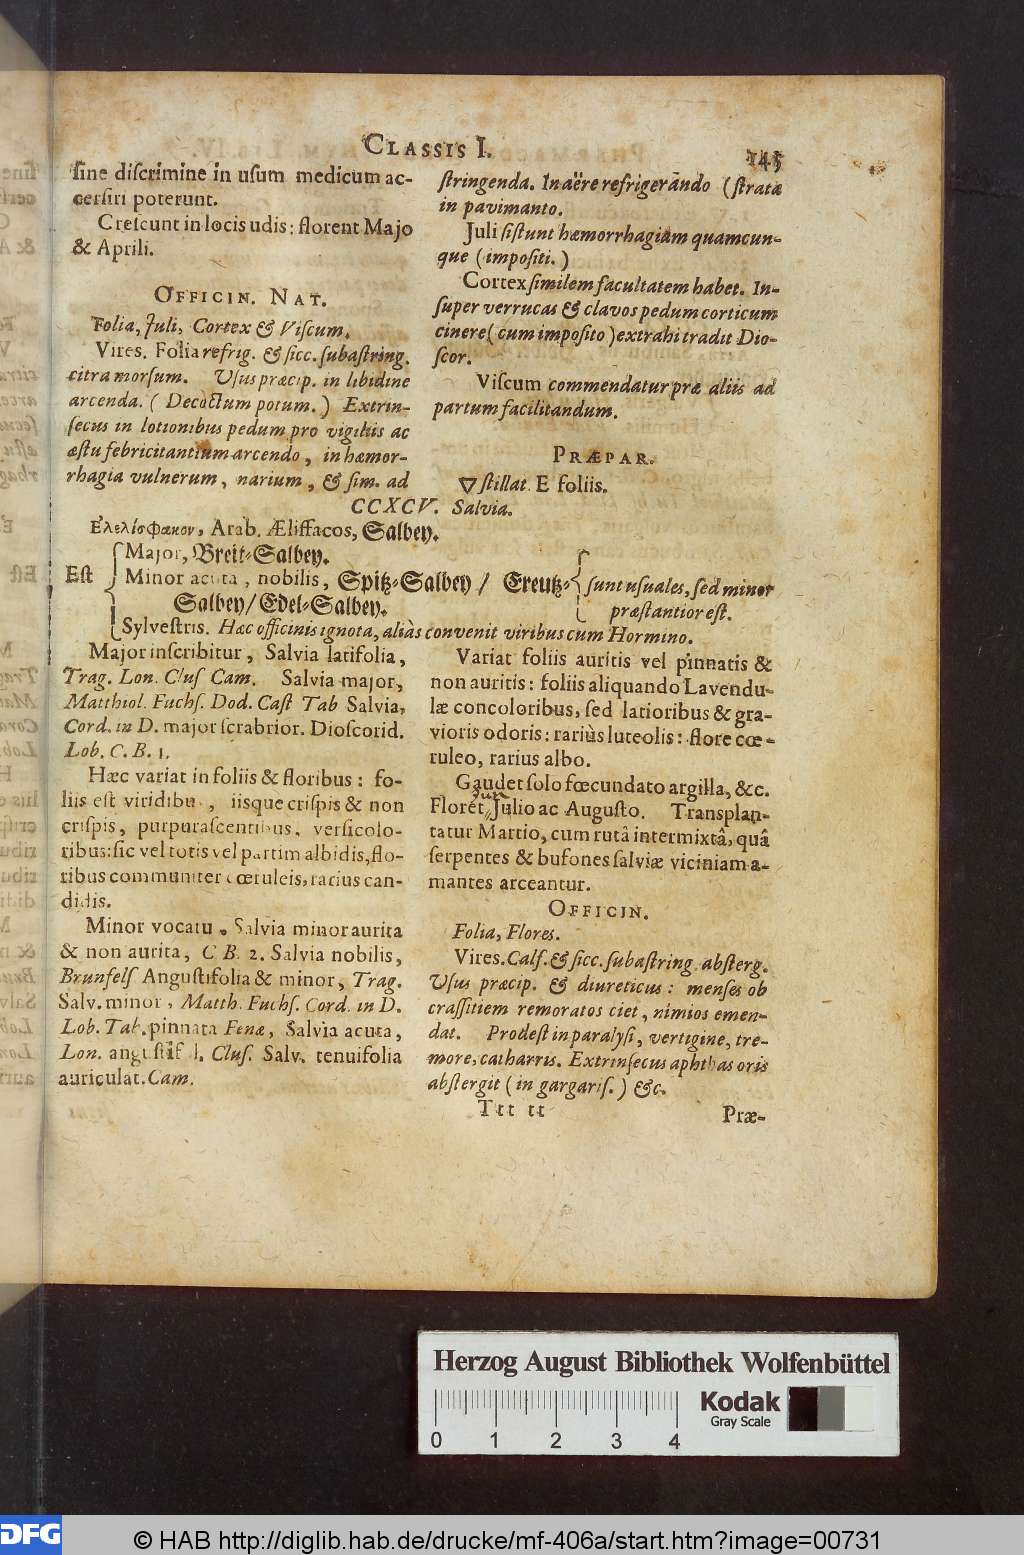 CLASSIS I.
145
ſine diſcrimine in uſum medicum ac-
cerſiri poterunt.
Creſcunt in locis udis: florent Majo
& Aprili.
OFFICIN. NAT.
Folia, Juli, Cortex & Viſcum.
Vires. Folia refrig. & ſicc. ſubaſtring.
citra morſum. Uſus præcip. in libidine
arcenda. ( Decoctum potum. ) Extrin-
ſecus in lotionibus pedum pro vigiliis ac
æſtu febricitantium arcendo, in hæmor-
rhagia vulnerum, narium, & ſim. ad
ſtringenda. In aëre refrigerãndo (ſtrata
in pavimanto.
Juli ſiſtunt hæmorrhagiam quamcun-
que (impoſiti.)
Cortex ſimilem facultatem habet. In-
ſuper verrucas & clavos pedum corticum
cinere (cum impoſito) extrahi tradit Dio-
ſcor.
Viſcum commendatur præ aliis ad
partum facilitandum.
PRÆPAR.
▽ ſtillat. E foliis.
CCXCV. Salvia.
Ελελίσφακον, Arab. Æliffacos, Salbey.
Eſt
Major, Breit-Salbey.
Minor acuta, nobilis, Spitz-Salbey / Creutz-
Salbey/ Edel-Salbey.
ſunt uſuales, ſed minor
præſtantior eſt.
Sylveſtris. Hæc officinis ignota, aliàs convenit viribus cum Hormino.
Major inſcribitur, Salvia latifolia,
Trag. Lon. Cluſ Cam. Salvia major,
Matthiol. Fuchſ. Dod. Caſt Tab Salvia,
Cord. in D. major ſcrabrior. Dioſcorid.
Lob. C. B. 1.
Hæc variat in foliis & floribus: fo-
liis eſt viridibu, iisque criſpis & non
criſpis, purpuraſcentibus, verſicolo-
ribus: ſic vel totis vel partim albidis, flo-
ribus communiter cœruleis, rarius can-
didis.
Minor vocatu, Salvia minor aurita
& non aurita, C B. 2. Salvia nobilis,
Brunfelſ Anguſtifolia & minor, Trag.
Salv. minor, Matth. Fuchſ. Cord. in D.
Lob. Tab. pinnata Fenæ, Salvia acuta,
Lon. anguſtif l. Cluſ. Salv. tenuifolia
auriculat. Cam.
Variat foliis auritis vel pinnatis &
non auritis: foliis aliquando Lavendu-
læ concoloribus, ſed latioribus & gra-
vioris odoris: rariùs luteolis: flore cœ-
ruleo, rarius albo.
Gaudet ſolo fœcundato argilla, &c.
Floret Julio ac Auguſto. Transplan-
tatur Martio, cum rutâ intermixtâ, quâ
ſerpentes & bufones ſalviæ viciniam a-
mantes arceantur.
OFFICIN.
Folia, Flores.
Vires. Calf. & ſicc. ſubaſtring. abſterg.
Uſus præcip. & diureticus: menſes ob
craſſitiem remoratos ciet, nimios emen-
dat. Prodeſt in paralyſi, vertigine, tre-
more, catharris. Extrinſecus aphthas oris
abſtergit (in gargariſ.) &c.
Ttt tt
Præ-
Herzog August Bibliothek Wolfenbüttel
0 1 2 3 4
Kodak
Gray Scale
DFG
© HAB http://diglib.hab.de/drucke/mf-406a/start.htm?image=00731